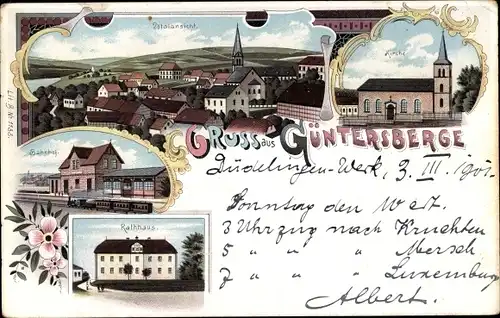 Totalansicht.
Kirche
GRUSS aus GÜNTERSBERGE
Bahnhof.
Rathhaus.
Düdelingen-Werk, 3. III. 1901.
Sonntag den
3 Uhrzug nach Kruchten
5 " " " Mersch
7 " " " Luxemburg
Albert.